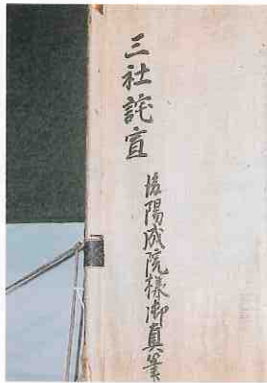 三社詫宣
後陽成院様御真筆